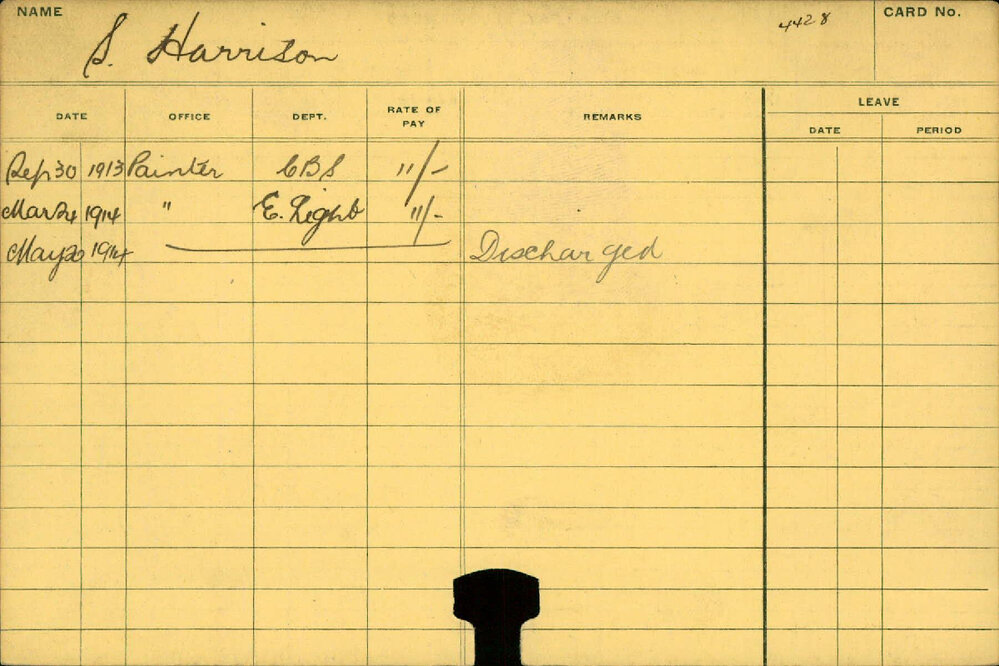 NAME S. Harrison 4428 CARD No.
LEAVE
DATE OFFICE DEPT. RATE OF PAY REMARKS DATE PERIOD
Sep 30 1913 Painter CBS 11/-
Mar 24 1914 " E. Light 11/-
May 20 1914 Discharged